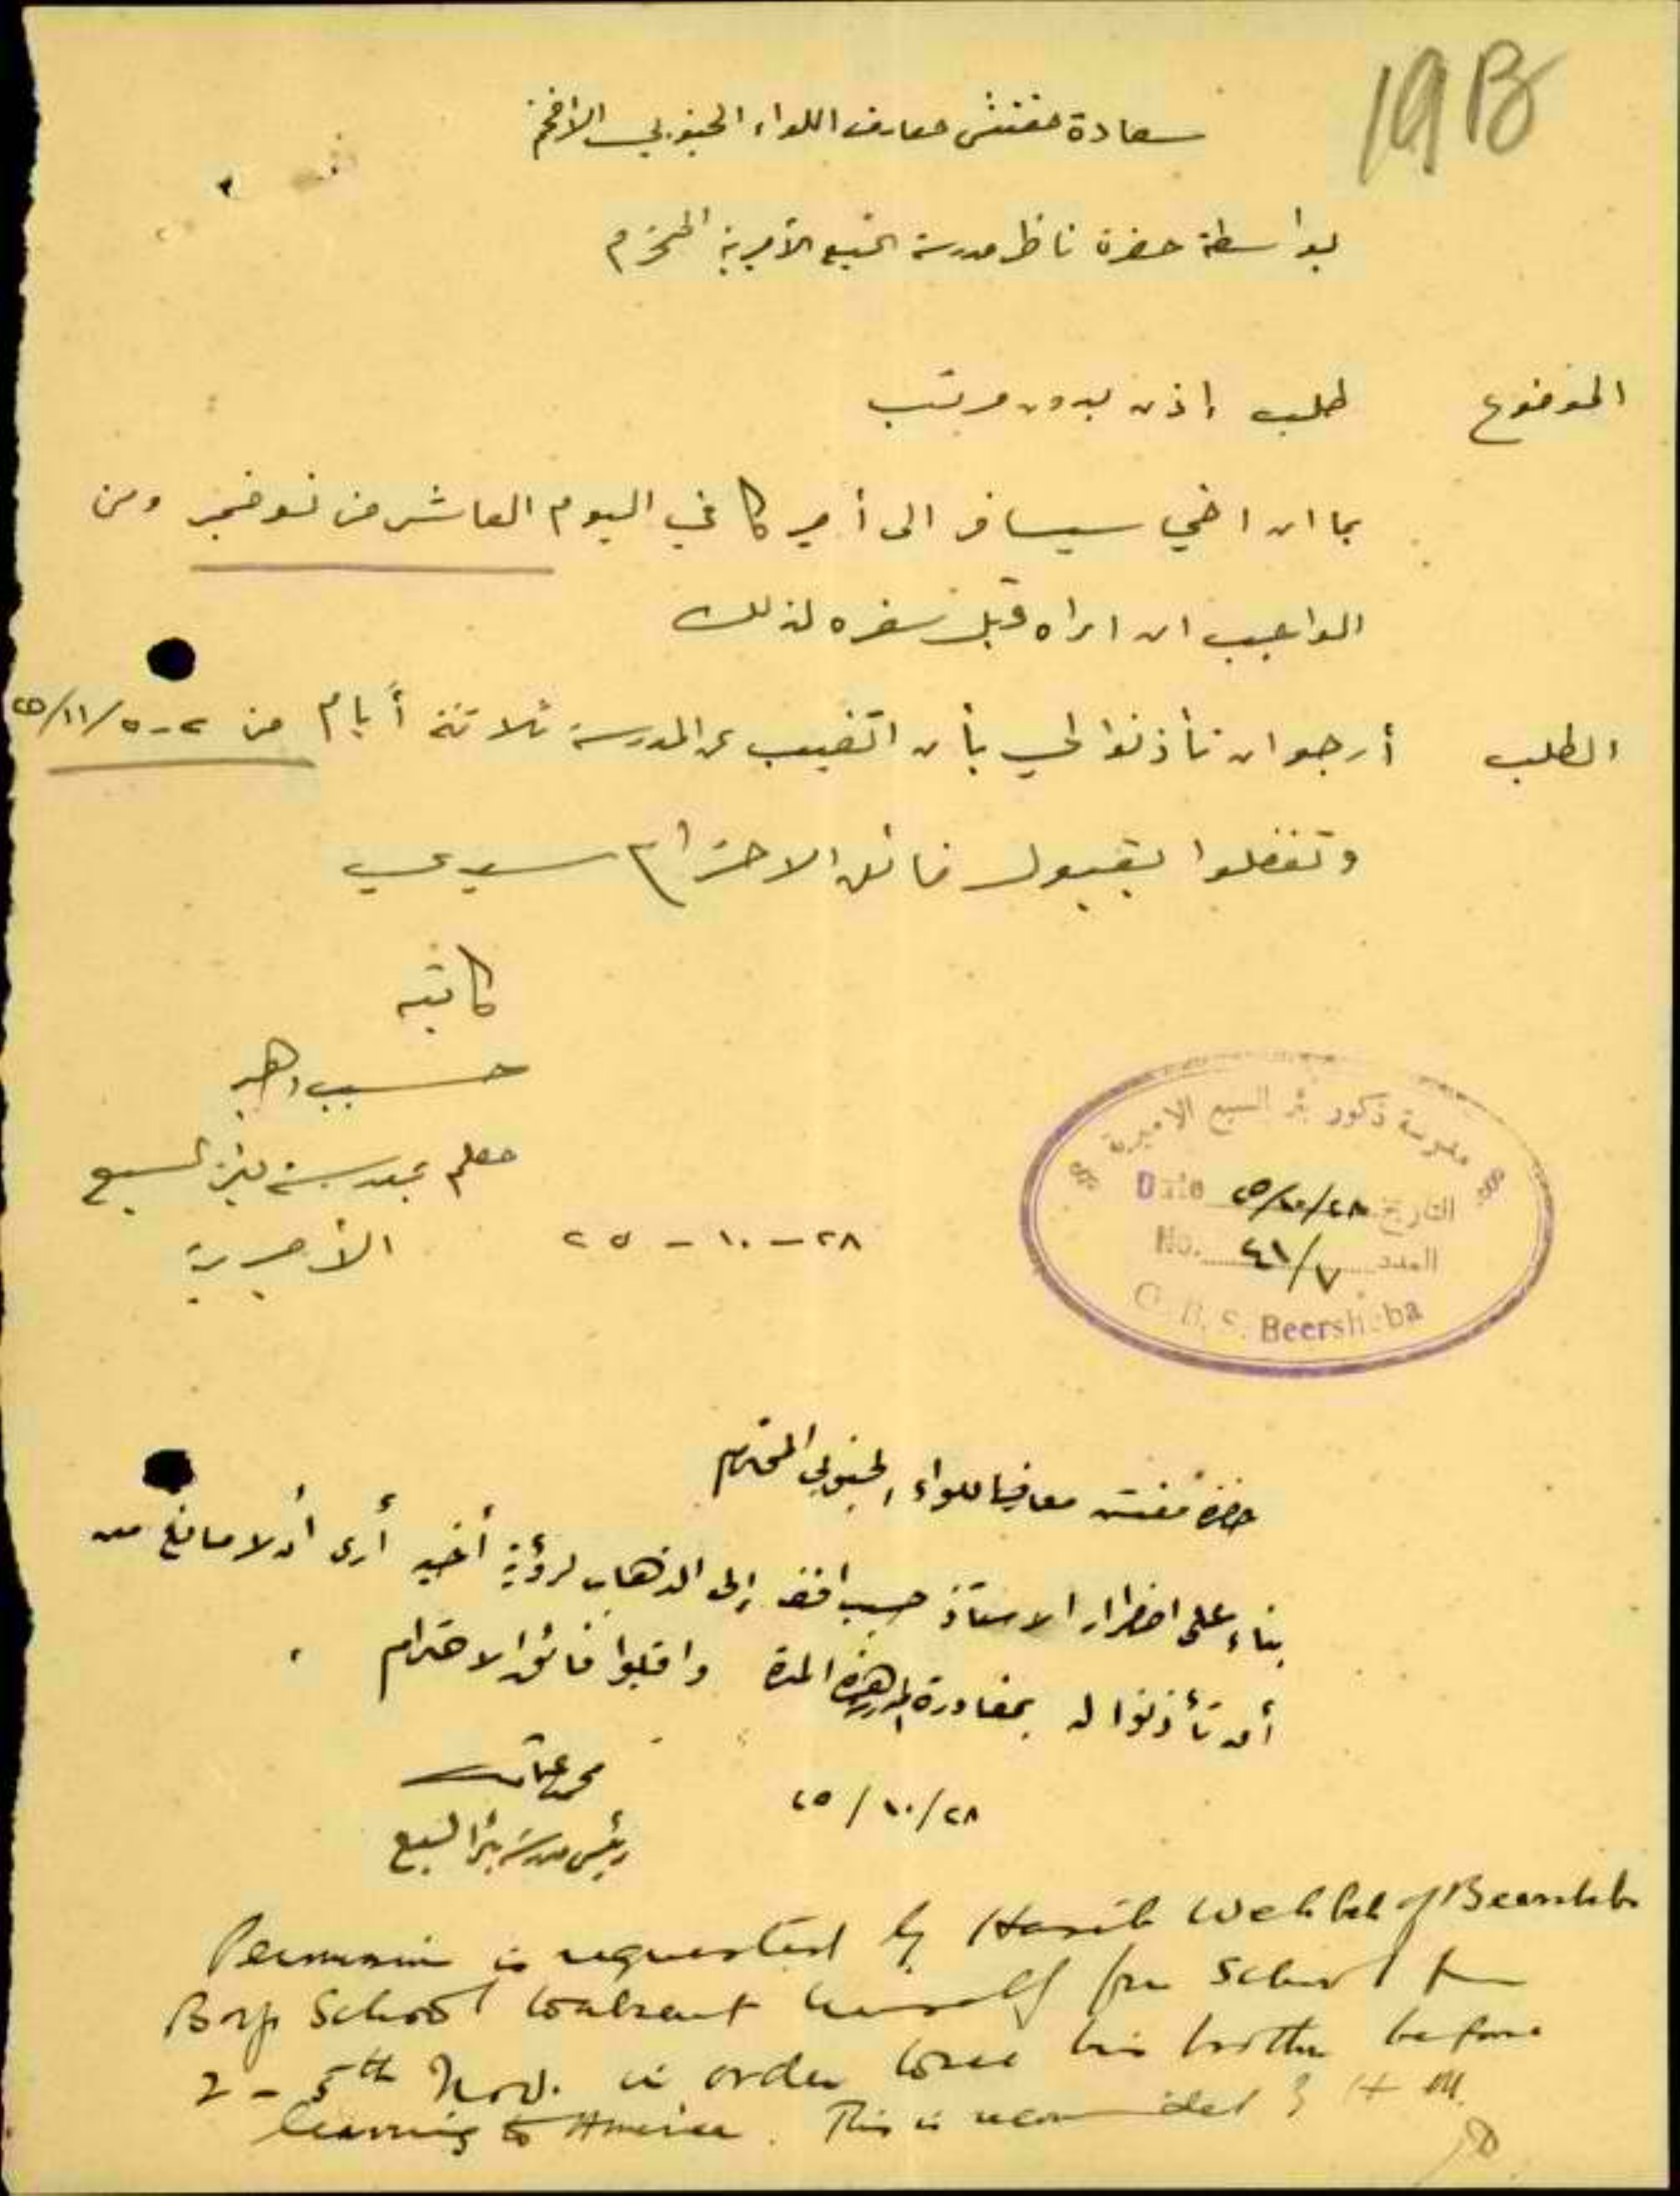 19B
سعادة مفتش معارف اللواء الجنوبي الافخم
بواسطة حضرة ناظر مدرسة السبع الأميرية المحترم
الموضوع طلب إذن بدون مرتب
بما ان اخي سيسافر الى أميركا في اليوم العاشر من نوفمبر ومن
الواجب ان اراه قبل سفره لذلك
الطلب أرجو ان تأذنوا لي بأن اتغيب عن المدرسة ثلاثة أيام من ٢-٥/١١/٢٥
وتفضلوا بقبول فائق الاحترام سيدي
كاتبه
حسيب وهبه
معلم بمدرسة بئر السبع
الأميرية
٢٨-١٠-٢٥
مدرسة ذكور بئر السبع الاميرية
Date ٢٨/١٠/٢٥ التاريخ
No. ٤١/٧ العدد
G. B. S. Beersheba
حضرة مفتش معارف اللواء الجنوبي المحترم
بناء على اضطرار الاستاذ حسيب افندي إلى الذهاب لرؤية أخيه أرى أن لا مانع من
أن تأذنوا له بمغادرة المدرسة هذه المدة واقبلوا فائق الاحترام
٢٨/١٠/٢٥
رئيس مدرسة بئر السبع
Permission is requested by Hasib Wehbeh of Beersheba
Boys School to absent himself from School from
2 - 5th Nov. in order to see his brother before
leaving to America. This is recommended by H M.